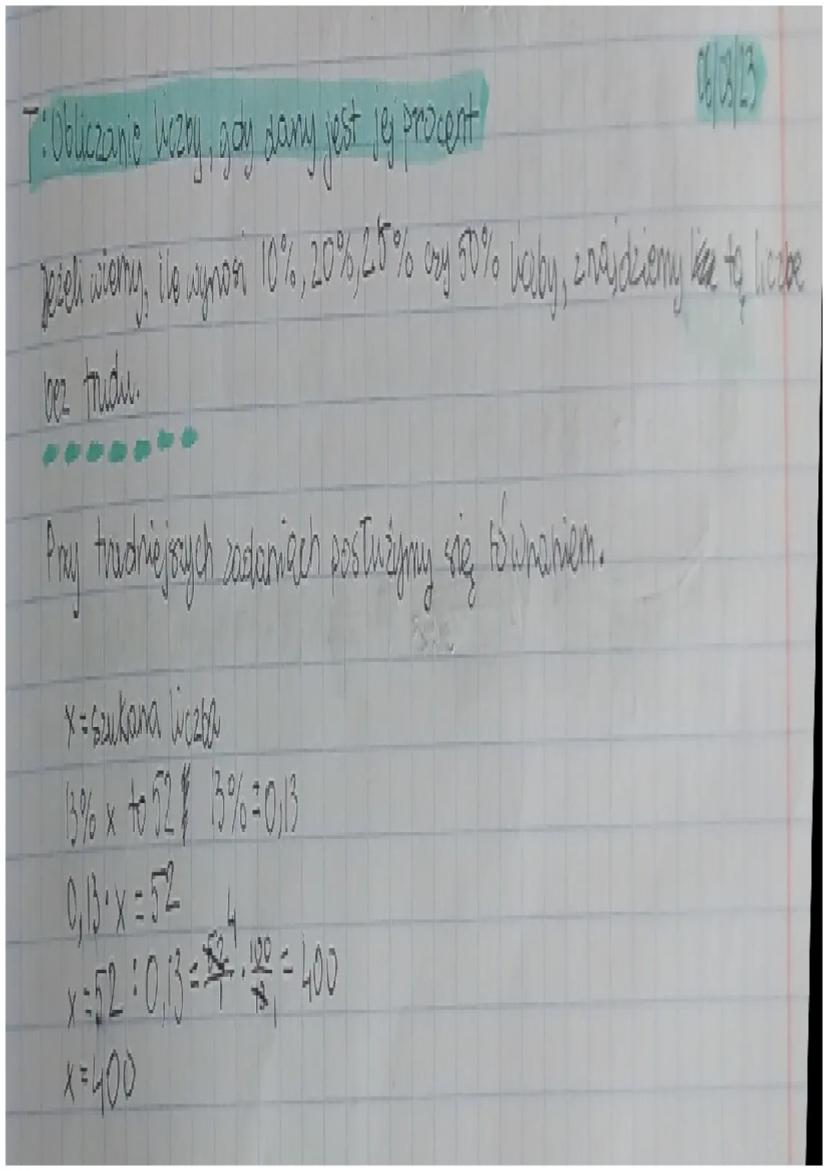 06/03/23
T: Obliczanie liczby, gdy dany jest jej procent
Jeżeli wiemy, ile wynosi 10%, 20%, 25% czy 50% liczby, znajdziemy tą liczbe
bez trudu.
Przy trudniejszych zadaniach posłużymy się równaniem.
x = szukana liczba
13% x to 52 13% = 0,13
0,13 · x = 52
x = 52 : 0,13 = 52/1 4 · 100/13 1 = 400
x = 400